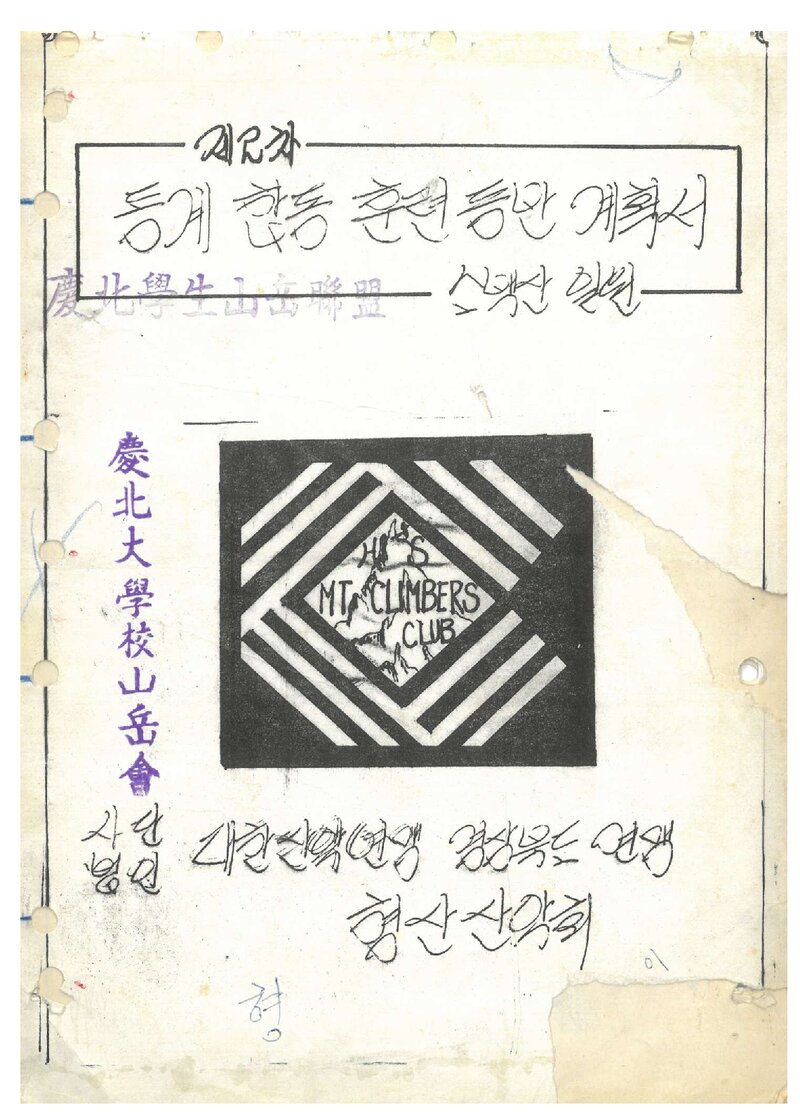 제2차
동계 합동 훈련등반 계획서
慶北學生山岳聯盟
일원
H S
MT. CLIMBERS
CLUB
慶北大學校山岳會
사단
법인
대한산악연맹 경상북도 연맹
형산산악회
형